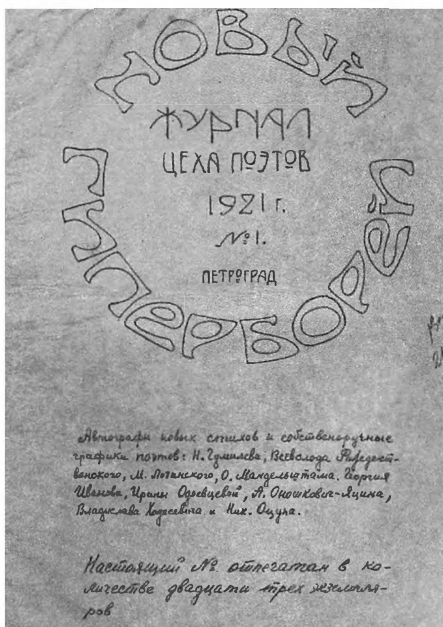 НОВЫЙ
ЖУРНАЛ
ЦЕХА ПОЭТОВ
1921 г.
№ 1.
ПЕТРОГРАД
ГИПЕРБОРЕЙ
Автографы новых стихов и собственноручные
графики поэтов: Н. Гумилева, Всеволода Рождест-
венского, М. Лозинского, О. Мандельштама, Георгия
Иванова, Ирины Одоевцевой, А. Оношкович-Яцына,
Владислава Ходасевича и Ник. Оцупа.
Настоящий № отпечатан в ко-
личестве двадцати трех экземпля-
ров